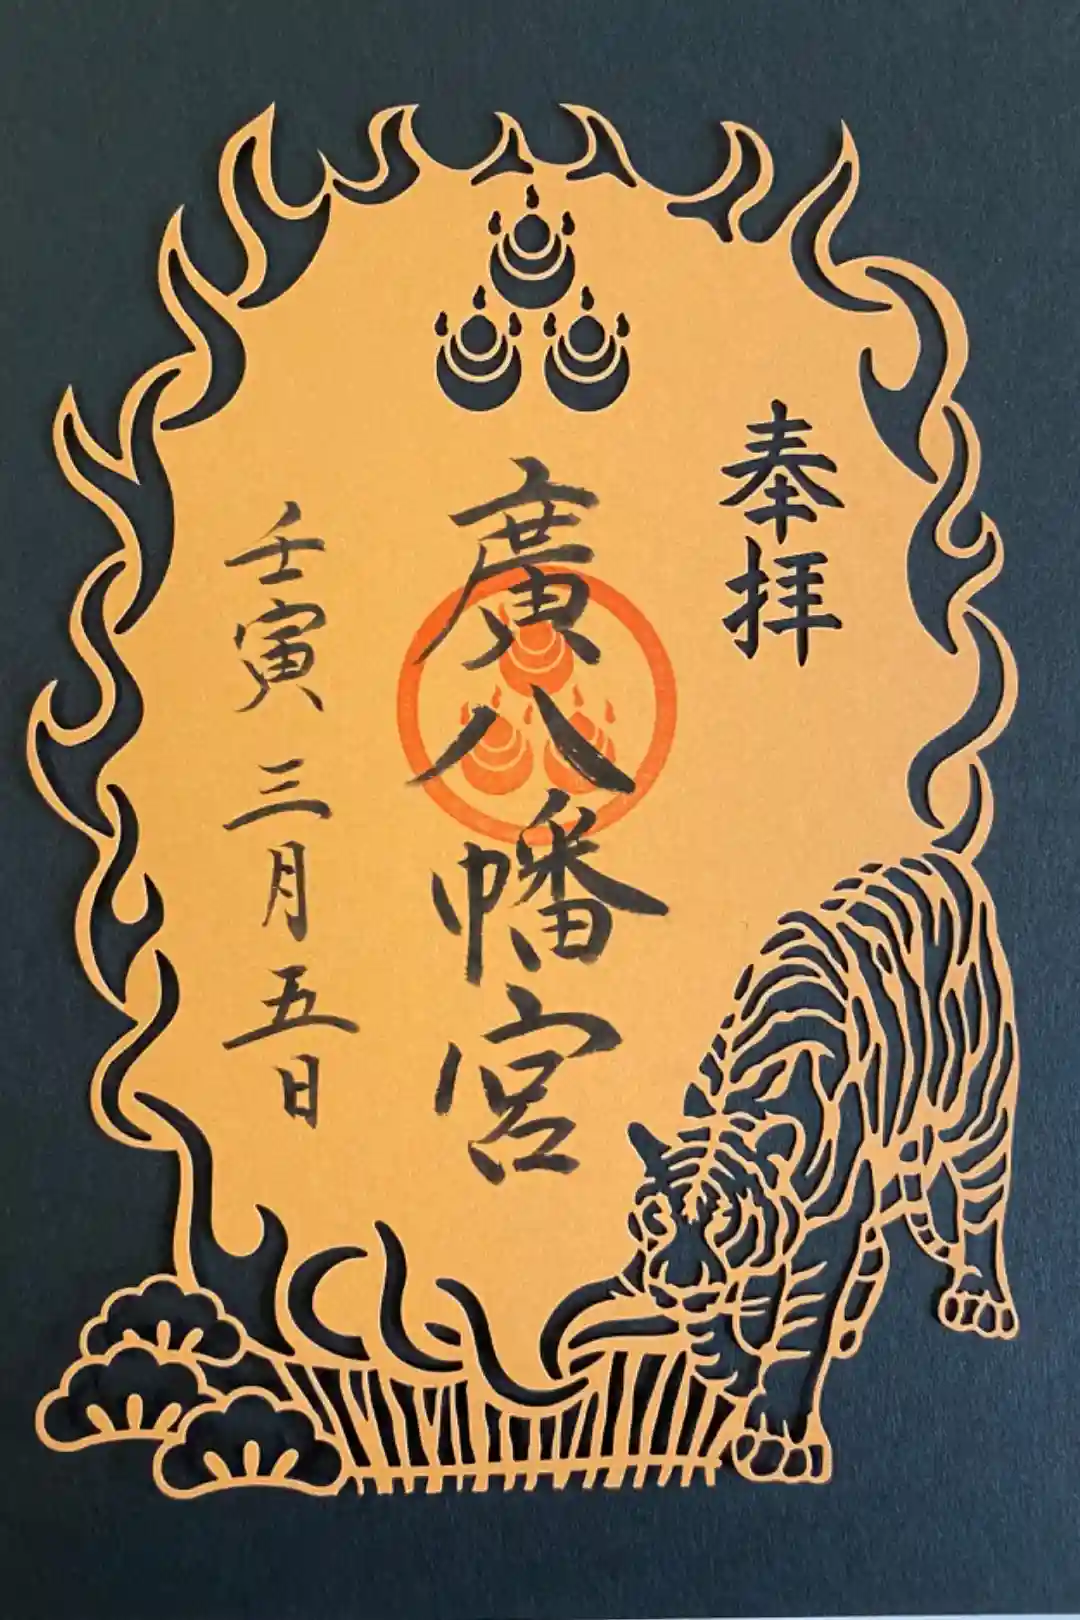 奉拝
廣八幡宮
壬寅三月五日